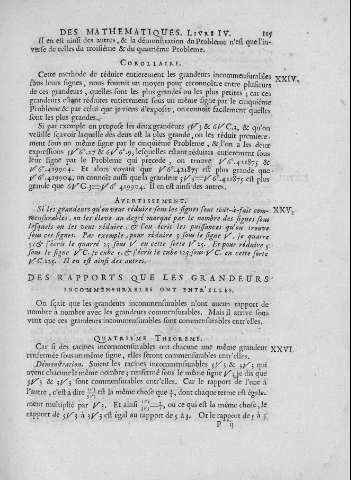 DES MATHEMATIQUES. LIVRE IV. 115
Il en est ainsi des autres, & la démonstration du Probleme n'est que l'in-
verse de celles du troisiéme & du quatriéme Probleme.
COROLLAIRE.
Cette methode de réduire entierement les grandeurs incommensurables XXIV.
sans leurs signes, nous fournit un moyen pour reconnoître entre plusieurs
de ces grandeurs, quelles sont les plus grandes ou les plus petites; car ces
grandeurs étant réduites entierement sous un même signe par le cinquiéme
Probleme & par celui que je viens d'exposer, on connoît facilement quelles
sont les plus grandes.
Si par exemple on propose les deux grandeurs 5V3 & 6VC.2, & qu'on
veüille sçavoir laquelle des deux est la plus grande, on les réduit premiere-
ment sous un même signe par le cinquiéme Probleme, & l'on a les deux
expressions
leur signe par le Probleme qui precede, on trouve V6.421875
& V6.419904. Et alors voyant que V6.421875 est plus grande que
V6.419904, on connoît aussi que la grandeur
grande que Il en est ainsi des autres.
AVERTISSEMENT.
Si les grandeurs qu'on veut réduire sous les signes sont tout-à-fait com- XXV.
mensurables, on les éleve au degré marqué par le nombre des signes sous
lesquels on les veut réduire, & l'on écrit les puissances qu'on trouve
sous ces signes. Par exemple, pour réduire 5 sous le signe V, je quarre
5; & j'écris le quarré 25 sous V en cette sorte V25. Et pour réduire 5
sous le signe VC. je cube 5, & j'écris le cube 125 sous VC. en cette sorte
VC.125. Il en est ainsi des autres.
DES RAPPORTS QUE LES GRANDEURS
INCOMMENSURABLES ONT ENTR'ELLES.
On sçait que les grandeurs incommensurables n'ont aucun rapport de
nombre à nombre avec les grandeurs commensurables. Mais il arrive sou-
vent que ces grandeurs incommensurables sont commensurables entr'elles.
QUATRIÉME THEOREME.
Car si des racines incommensurables ont chacune une même grandeur XXVI.
renfermée sous un même signe, elles seront commensurables entr'elles.
Démonstration. Soient les racines incommensurables 5V3 & 3V3 qui
ayent chacune le même nombre 3 renfermé sous le même signe V, je dis que
5V3 & 3V3 sont commensurables entr'elles. Car le rapport de l'une à
l'autre, c'est à dire est la même chose que dont chaque terme est égale-
ment multiplié par V3. Et ainsi ou ce qui est la même chose, le
rapport de 5V3 à 3V3 est égal au rapport de 5 à 3. Or le rapport de 5 à 3
P ij